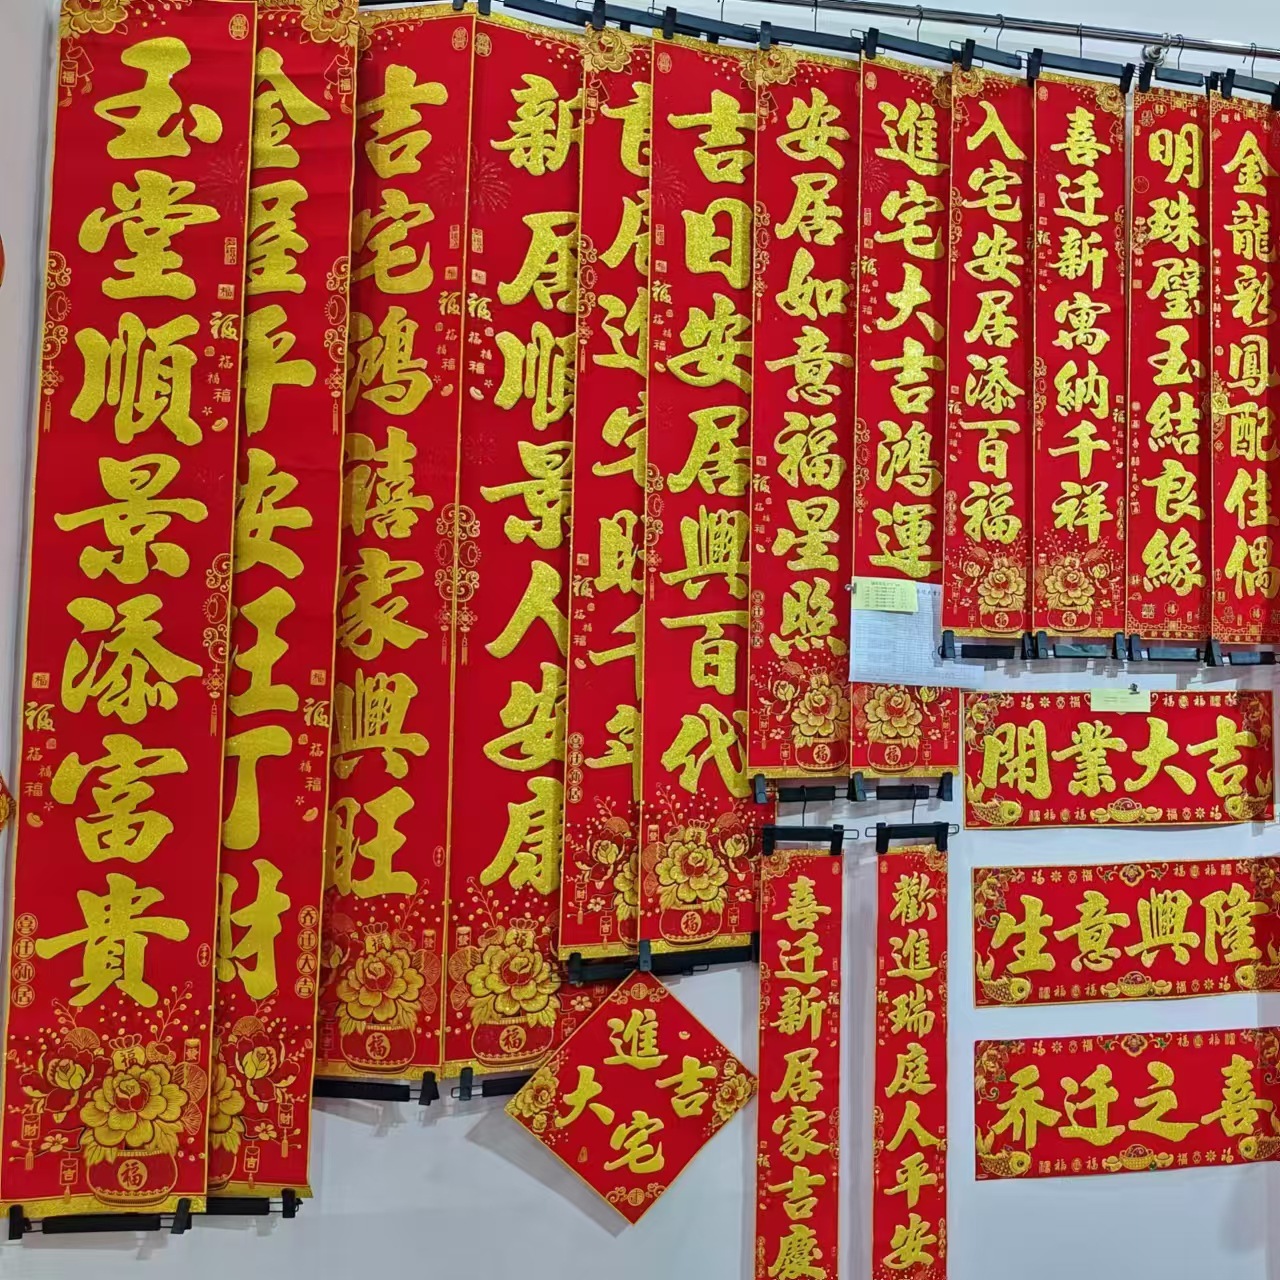 玉堂順景添富貴
金屋平安旺丁財
吉宅鴻禧家興旺
新居順景人安康
吉日安居興百代
安居如意福星照
進宅大吉鴻運
入宅安居添百福
喜迁新寓納千祥
明珠璧玉結良緣
金龍彩鳳配佳偶
開業大吉
生意興隆
乔迁之喜
進大吉宅
喜迁新居家吉慶
歡進瑞庭人平安